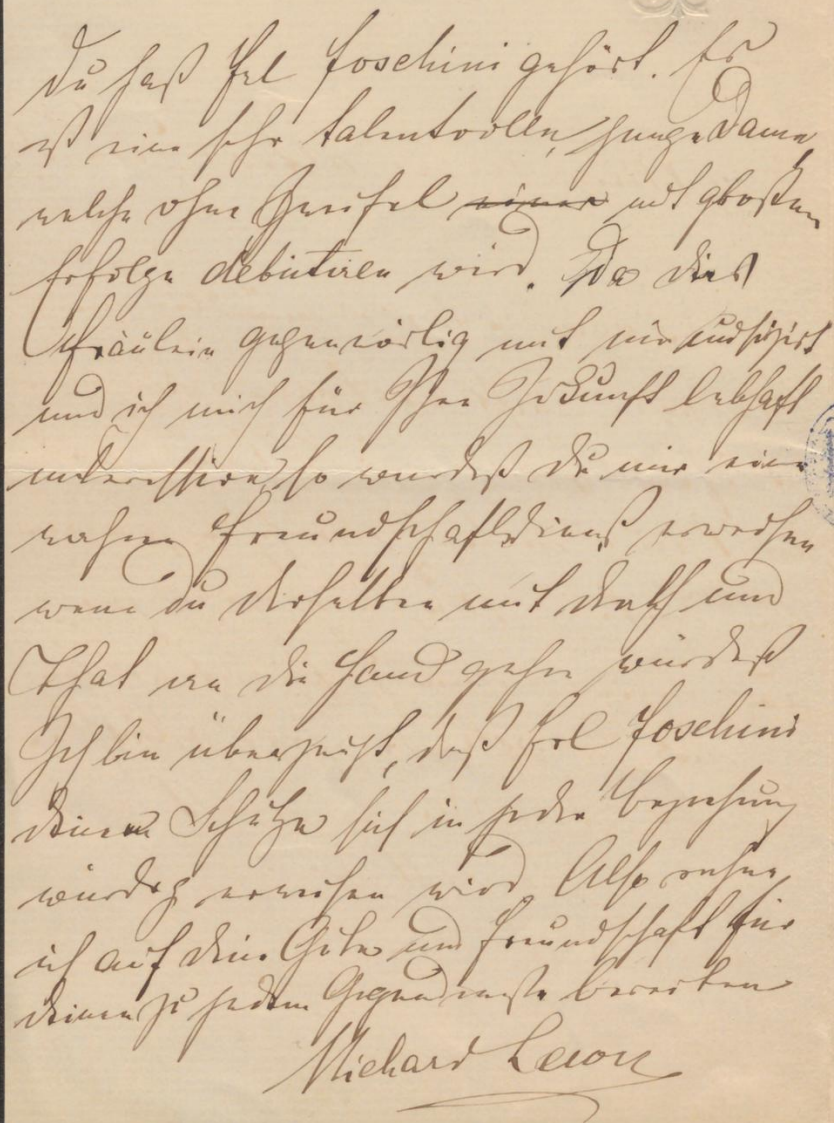 Du hast Frl Foschini gehört. Es
ist eine sehr talentvolle, junge Dame,
welche ohne Zweifel einer mit großem
Erfolge debutiren wird. Da dies
Fräulein gegenwärtig mit mir
und ich mich für Ihre Zukunft lebhaft
interessire, so wurdest Du mir einen
wahren Freundschaftsdienst erweisen
wenn du derselben mit Rath und
That an die Hand gehen würdest
Ich bin überzeugt, daß Frl Foschini
deinem Schutze sich in jeder Beziehung
würdig erweisen wird. Also rechne
ich auf deine Güte und Freundschaft für
deinen zu jedem Gegendienste bereiten
Richard